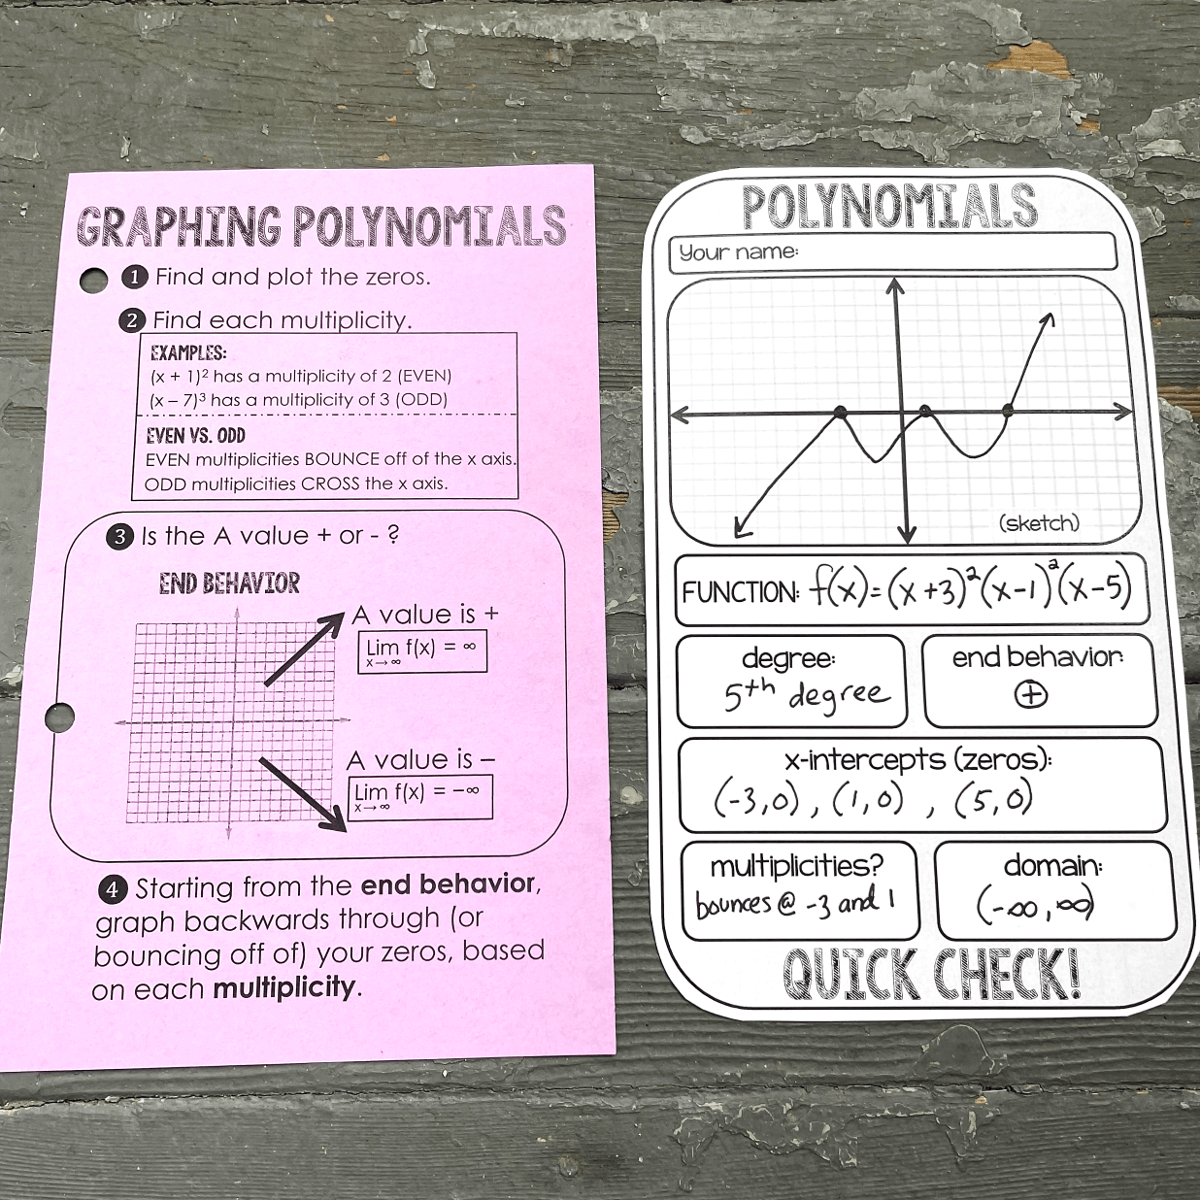 GRAPHING POLYNOMIALS
1 Find and plot the zeros.
2 Find each multiplicity.
EXAMPLES:
(x + 1)² has a multiplicity of 2 (EVEN)
(x – 7)³ has a multiplicity of 3 (ODD)
EVEN VS. ODD
EVEN multiplicities BOUNCE off of the x axis.
ODD multiplicities CROSS the x axis.
3 Is the A value + or - ?
END BEHAVIOR
A value is +
Lim f(x) = ∞
x→∞
A value is –
Lim f(x) = -∞
x→∞
4 Starting from the end behavior,
graph backwards through (or
bouncing off of) your zeros, based
on each multiplicity.
POLYNOMIALS
Your name:
(sketch)
FUNCTION: f(x)=(x+3)²(x-1)²(x-5)
degree:
5th degree
end behavior:
+
x-intercepts (zeros):
(-3,0), (1,0), (5,0)
multiplicities?
bounces @ -3 and 1
domain:
(-∞,∞)
QUICK CHECK!